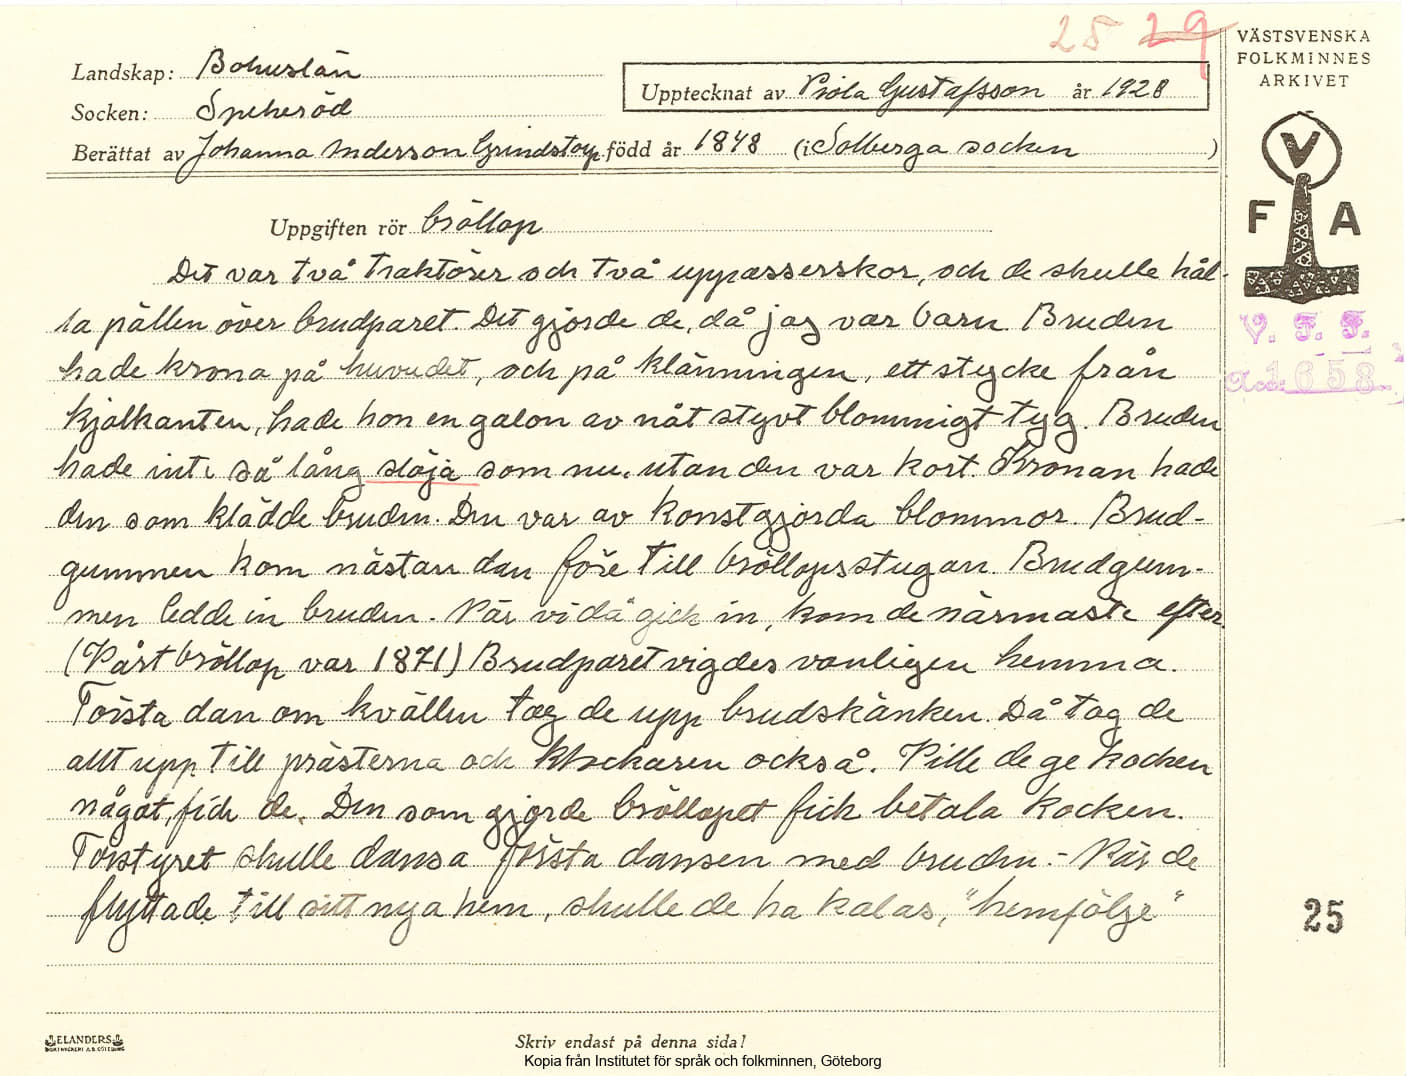 25 29
VÄSTSVENSKA
FOLKMINNES
ARKIVET
Landskap: Bohuslän
Upptecknat av Viola Gustafsson år 1928
Socken: Spekeröd
Berättat av Johanna Anderson Grindstorp född år 1848 (i Solberga socken )
V
F A
Uppgiften rör Bröllop
Det var två traktörer och två uppasserskor, och de skulle hål-
la pällen över brudparet. Det gjorde de, då jag var barn. Bruden
hade krona på huvudet, och på klänningen, ett stycke från
kjolkanten, hade hon en galon av nåt styvt blommigt tyg. Bruden
hade inte så lång slöja som nu, utan den var kort. Kronan hade
den som klädde bruden. Den var av konstgjorda blommor. Brud-
gummen kom nästan dan före till bröllopsstugan. Brudgum-
men ledde in bruden. När vi då gick in, kom de närmaste efter.
(Vårt bröllop var 1871) Brudparet vigdes vanligen hemma.
Första dan om kvällen tog de upp brudskänken. Då tog de
allt upp till prästerna och klockaren också. Ville de ge kocken
något, fick de. Den som gjorde bröllopet fick betala kocken.
Förstyret skulle dansa första dansen med bruden. - När de
flyttade till sitt nya hem, skulle de ha kalas, "hemfölje"
V. F. F.
Acc. 1658
25
ELANDERS
BOKTRYCKERI A.B. GÖTEBORG
Skriv endast på denna sida!
Kopia från Institutet för språk och folkminnen, Göteborg